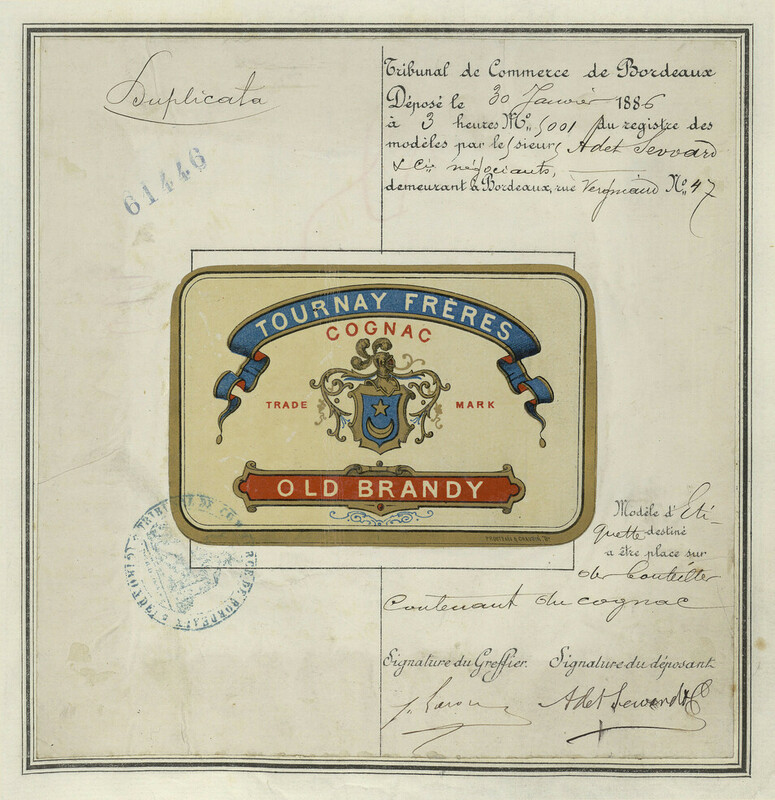 Duplicata
61446
Tribunal de Commerce de Bordeaux
Déposé le 30 Janvier 1886
à 3 heures Nº 5001 du registre des
modèles par les sieurs Adet Seward
& Cie négociants,
demeurant à Bordeaux, rue Vergniaud Nº 47
TOURNAY FRÈRES
COGNAC
TRADE MARK
OLD BRANDY
TRIBUNAL DE COMMERCE DE BORDEAUX
Modèle d'Eti-
quette destiné
a être place sur
des bouteilles
contenant du cognac
Signature du Greffier. Signature du déposant
Adet Seward & C